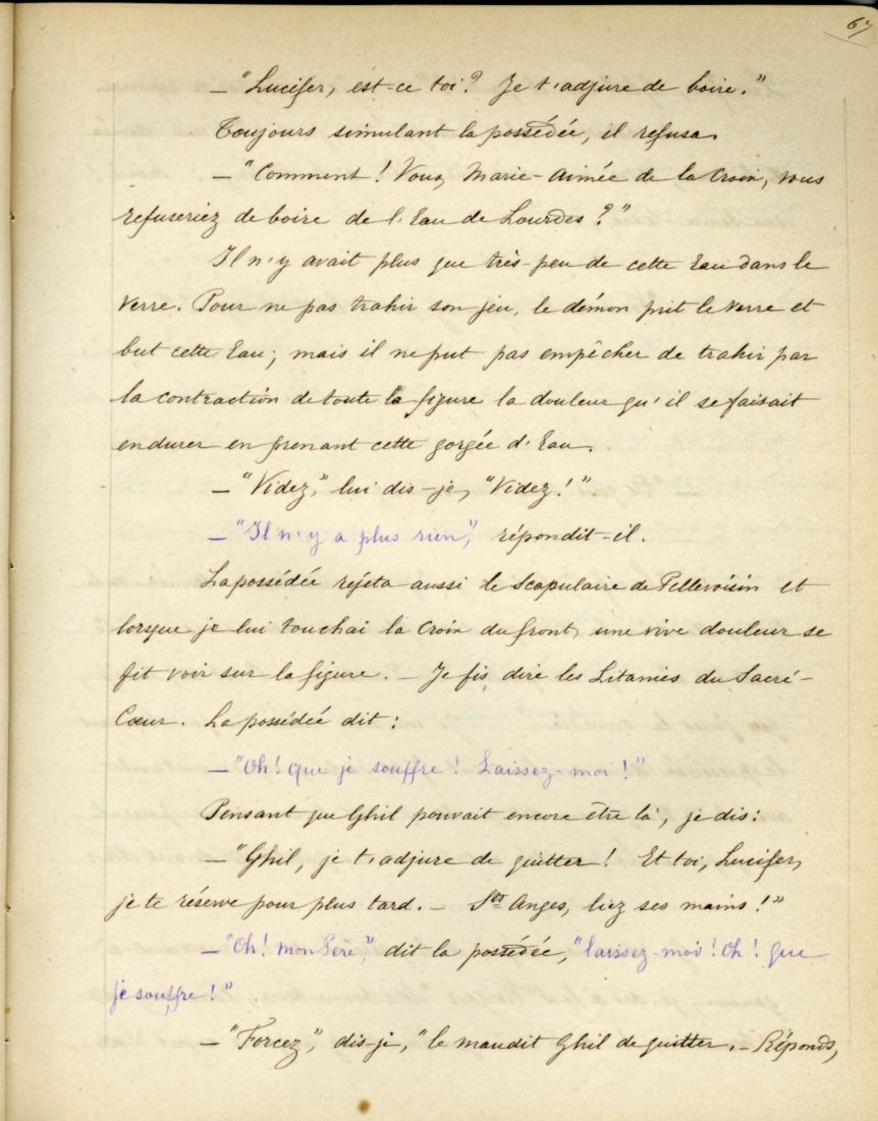 67
— "Lucifer, est-ce toi? Je t'adjure de boire."
Toujours simulant la possédée, il refusa.
— "Comment! Vous, Marie-Aimée de la Croix, vous
refuseriez de boire de l'Eau de Lourdes?"
Il n'y avait plus que très-peu de cette Eau dans le
verre. Pour ne pas trahir son jeu, le démon prit le verre et
but cette Eau; mais il ne put pas empêcher de trahir par
la contraction de toute la figure la douleur qu'il se faisait
endurer en prenant cette gorgée d'Eau.
— "Videz," lui dis-je, "Videz!"
— "Il n'y a plus rien," répondit-il.
La possédée rejeta aussi le Scapulaire de Pellevoisin et
lorsque je lui touchai la Croix du front, une vive douleur se
fit voir sur la figure. — Je fis dire les Litanies du Sacré-
Cœur. La possédée dit:
— "Oh! que je souffre! Laissez-moi!"
Pensant que Ghil pouvait encore être là, je dis:
— "Ghil, je t'adjure de quitter! Et toi, Lucifer,
je te réserve pour plus tard. — Sts Anges, liez ses mains!"
— "Oh! mon Père," dit la possédée, "laissez-moi! Oh! que
je souffre!"
— "Forcez," dis-je, "le maudit Ghil de quitter. — Réponds,